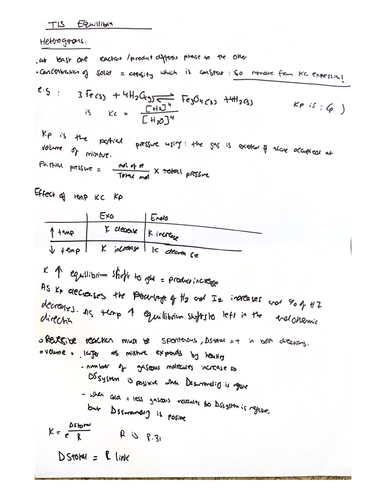 T13 Equilibria
Heterogenous:
at least one reactant/product different phase to the other
Concentration of solid = density which is constant: so remove from Kc expression!
e.g: 3Fe(s) + 4H2O(g) ⇌ Fe3O4(s) + 4H2(g)
is Kc = [H2]^4 / [H2O]^4
Kp is: (p )
Kp is the partial pressure using: the gas is
volume of mixture.
Partial pressure = mol of A / Total mol × total pressure
Effect of temp Kc Kp
Exo Endo
↑ temp K decrease K increase
↓ temp K increase K decrease
K ↑ equilibrium shift to right = product increase
As Kp decreases the percentage of H2 and I2 increases and % of HI
decreases. As temp ↑ equilibrium shifts to left in the endothermic
direction
Reversible reaction must be spontaneous, DStotal = + in both directions.
volume = as mixture expands by heating
- number of gaseous molecules increase so
DSsystem is positive when DSsurrounding is negative
- when cold = less gaseous molecules so DSsystem is negative,
but DSsurrounding is positive
K = e DStotal / R R is 8.31
DStotal = R lnK